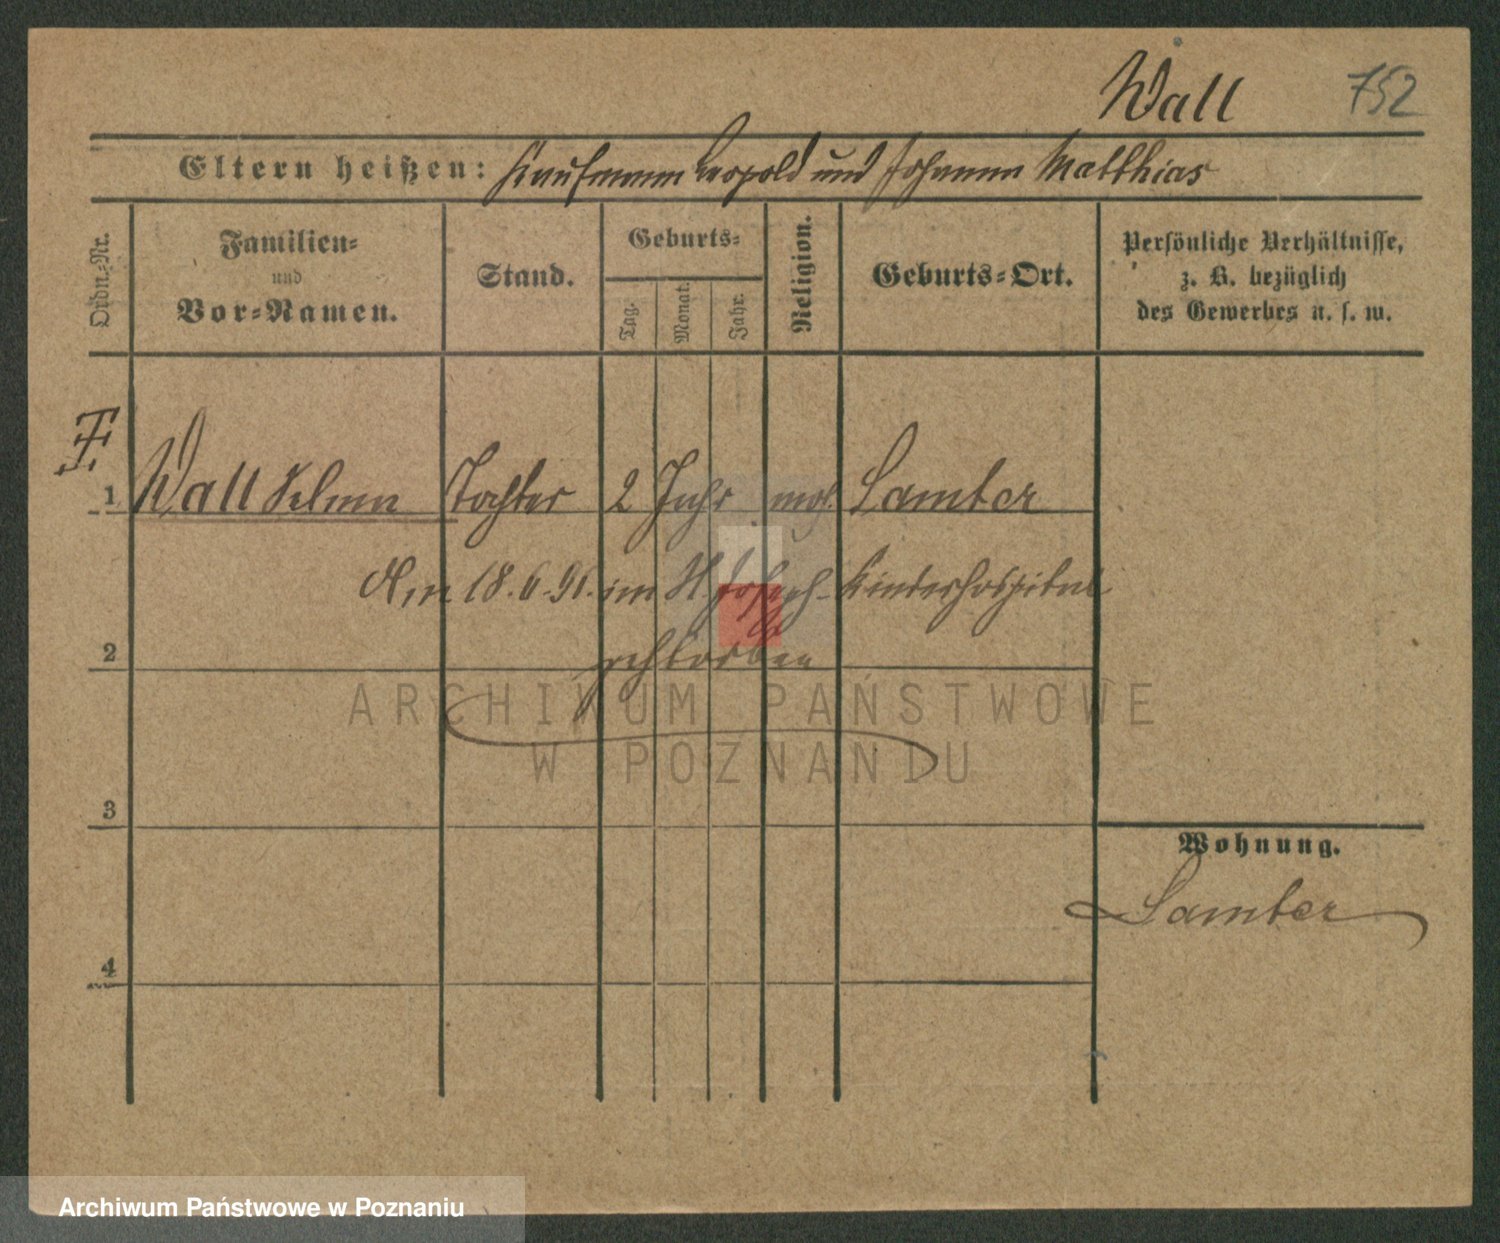 Wall 752
Eltern heißen: Kaufmann Leopold und Johanna Matthias
Ordn.-Nr.
Familien-
und
Vor-Namen.
Stand.
Geburts-
Tag.
Monat.
Jahr.
Religion.
Geburts-Ort.
Persönliche Verhältnisse,
z. B. bezüglich
des Gewerbes u. s. w.
1 Wall Selma Tochter 2 Jahr mos. Samter
Am 18.6.91. im St. Joseph-Kinderhospital
2 gestorben
ARCHIWUM PAŃSTWOWE
W POZNANIU
3
Wohnung.
Samter
4
Archiwum Państwowe w Poznaniu